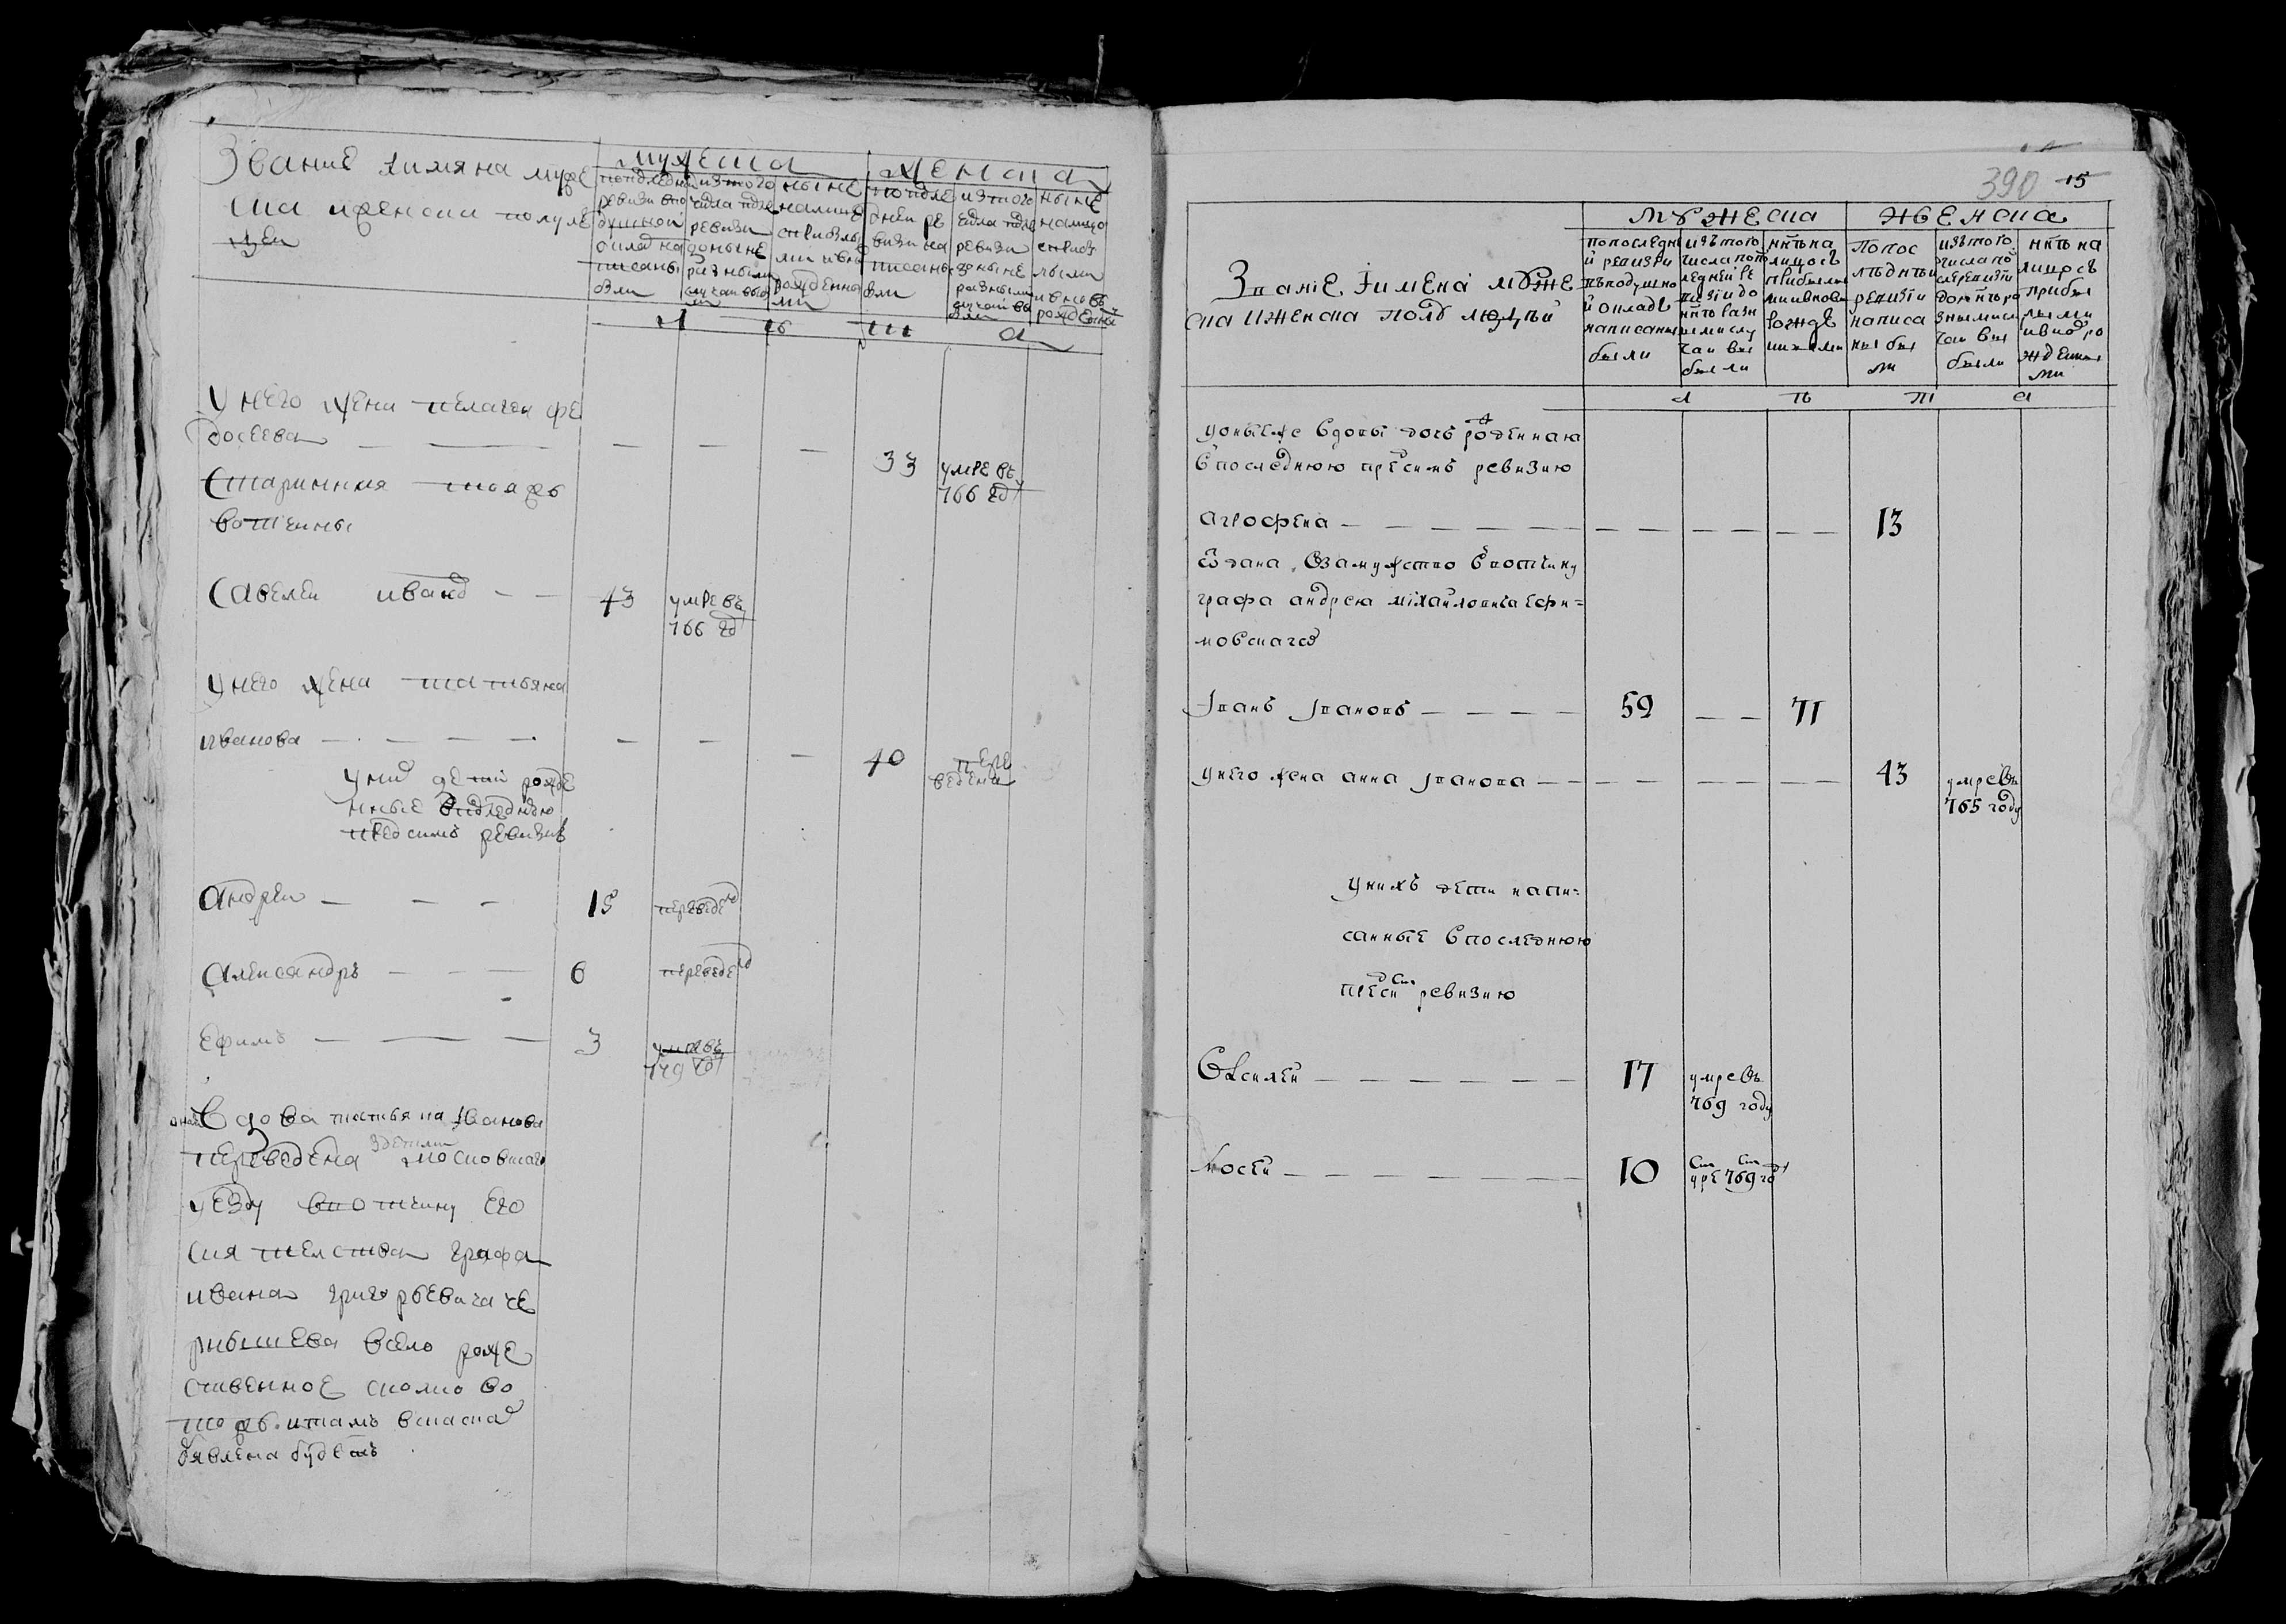 Звание и имяна муже
ска и женска полу лю
дей
мужеска
женска
последней
ревизии в по
душной
оклад на
писаны
были
из того
числа после
ревизи
до ныне
разными
случаи выб
ли
ныне
налице
с прибылы
ми и внов
рожденны
ми
по после
дней ре
визи на
писаны
были
из того
числа после
ревизи
до ныне
разными
случаи вы
были
ныне
налицо
с приб
лыми
и вновь
рожденны
л
ѣ
т
а
у него жена пелагея фе
досеева
33
умре въ
766 году
Старинныя тояжъ
вотчины
Савелей иванов
43
умре въ
766 году
у него жена татьяна
иванова
40
пере
ведена
у них дети рожде
нные в последнюю
пред симъ ревизию
Андрей
15
переведен
Александръ
6
переведен
Ефимъ
3
умре въ
779 году
Вдова татьяна Иванова
переведена з детми московскаго
уезду в вотчину его
сиятелства графа
ивана григорьевича че
рнышева в село роже
ственное
тожъ и тамъ в сказках
обявлена будетъ
390
15
Званіе и имена мꙋже
ска и женска полꙋ людѣй
мꙋжеска
женска
по последне
й ревизіи
въ подушно
й окладъ
написаны
были
изъ того
числа по по
ледней ре
визіи до
нн҃ѣ разн
ыми слу
чаи вы
были
нн҃ѣ на
лицо съ
прибылы
ми и внов
рожде
нными
по пос
лѣднѣи
ревизіи
написа
ны бы
ли
изъ того
числа по
сл ревизіи
до нн҃ѣ ра
зными сл
чаи вы
были
нн҃ѣ на
лицо съ
прибы
лыми
и вновь ро
жденны
ми
л
ѣ
т
а
у оные же вдовы дочь рожденная
в последнюю пред симъ ревизию
агрофена
13
Въдана в замужство в вотчину
графа андрея міхайловича ефи=
мовскаго
Іванъ Івановъ
59
71
у него жена анна Іванова
43
умре въ
765 году
у нихъ дети напи=
санные в последнюю
пред сим ревизию
Василей
17
умре въ
769 году
Мосей
10
умре 769 го